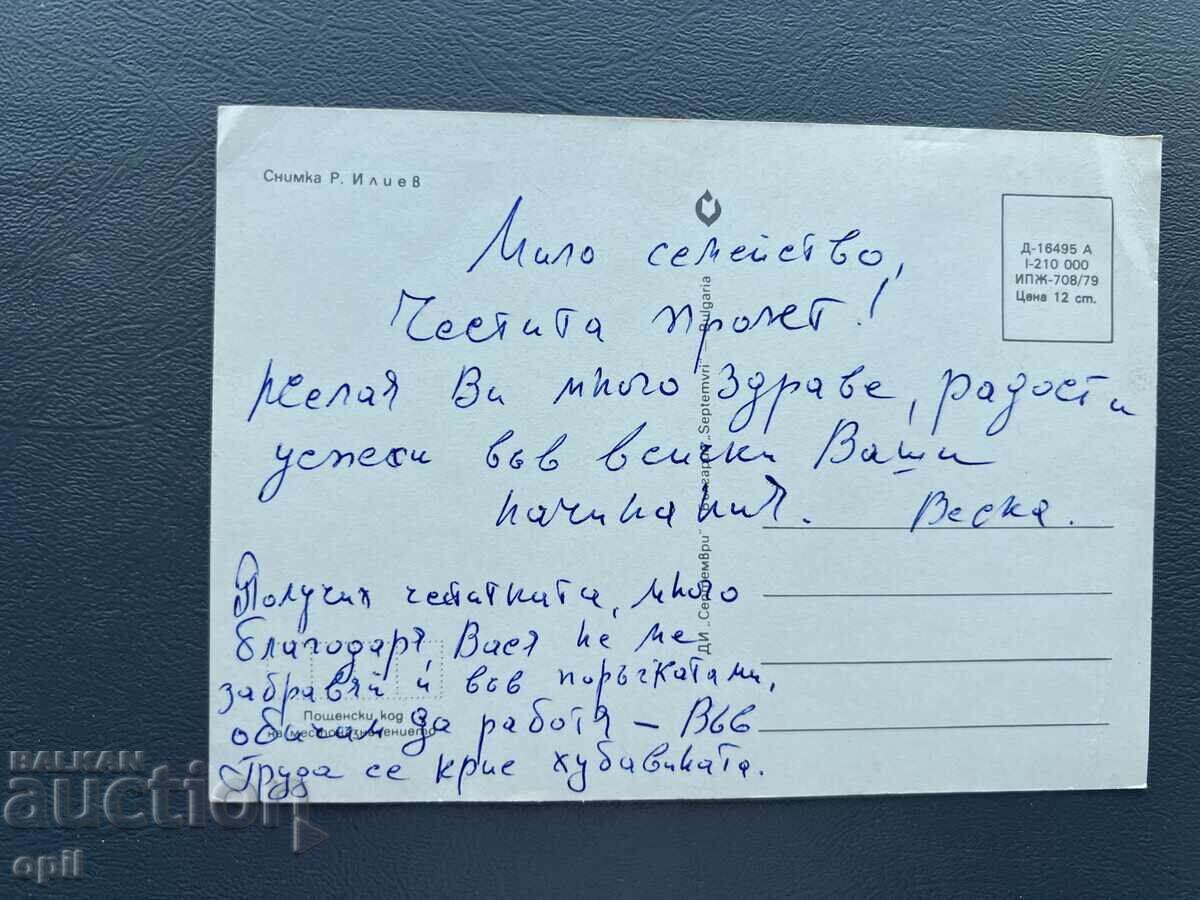 Снимка Р. Илиев
Д-16495 А
I-210 000
ИПЖ-708/79
Цена 12 ст.
ДИ „Септември" България „Septemvri" Bulgaria
Мило семейство,
Честита пролет!
Желая Ви много здраве, радост и
успехи във всички Ваши
начинания. Веска.
Получих честитката, много
благодаря, Вася не ме
забравяй и във поръчката ми,
обичам да работя – Във
труда се крие хубавината.
Пощенски код
на местоназначението
BALKAN
auction
opil